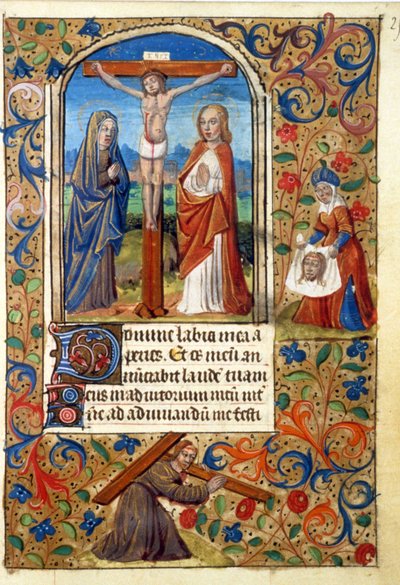 INRI
Domine labia mea a
peries. Et os meū an
nūciabit laudē tuam
Deus in adiutorium meū int
ad adiuuandū me festi